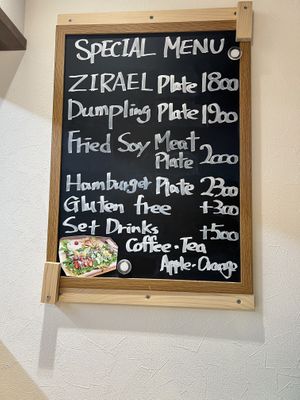 SPECIAL MENU
ZIRAEL Plate 1800
Dumpling Plate 1900
Fried Soy Meat
Plate 2000
Hamburger Plate 2300
Gluten free +300
Set Drinks +500
Coffee・Tea
Apple・Orange